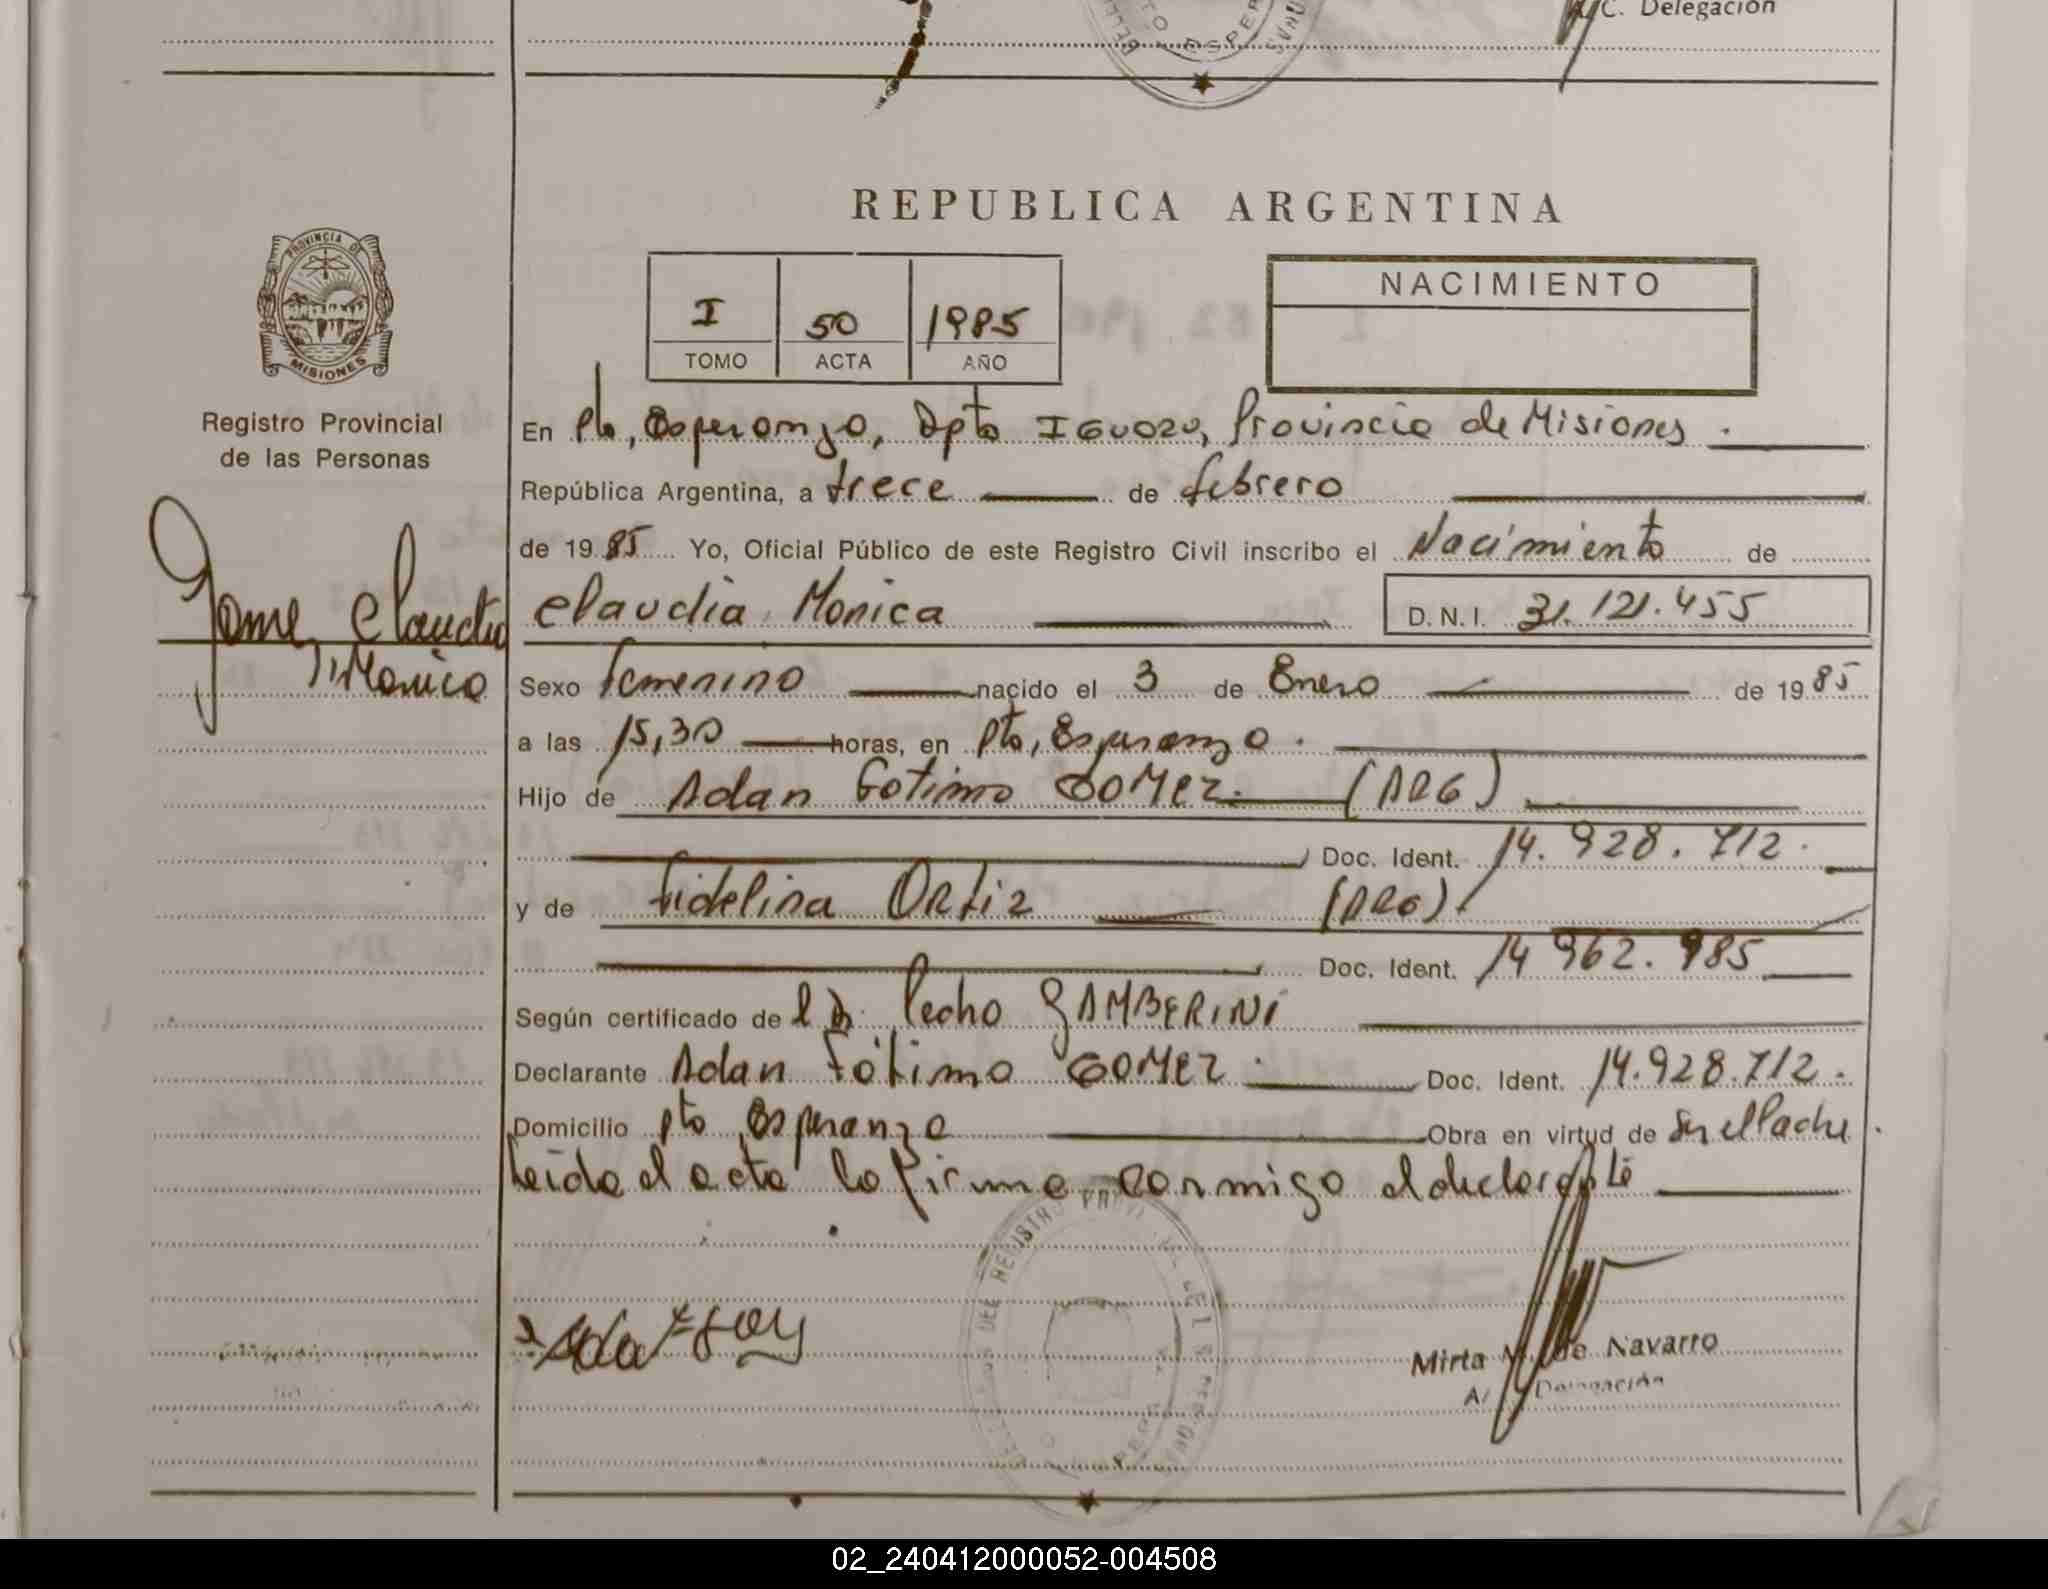 C. Delegación
REPUBLICA ARGENTINA
PROVINCIA DE
MISIONES
Registro Provincial
de las Personas
I 50 1985
TOMO ACTA AÑO
NACIMIENTO
En Pto, Esperanza, Dpto IGUAZU, Provincia de Misiones.
República Argentina, a trece de febrero
de 19 85 Yo, Oficial Público de este Registro Civil inscribo el Nacimiento de
Claudia Monica D.N.I. 31.121.455
Claudia
Monica
Sexo femenino nacido el 3 de Enero de 19 85
a las 15,30 horas, en Pto, Esperanza.
Hijo de Adan Fotimo GOMEZ. (ARG)
Doc. Ident. 14.928.712.
y de Fidelina Ortiz (ARG)
Doc. Ident. 14 962.985
Según certificado de Pecho GAMBERINI
Declarante Adan Fótimo GOMEZ. Doc. Ident. 14.928.712.
Domicilio Pto Esperanza Obra en virtud de Ser el Padre.
Leída el acta la firma conmigo el declarante
Mirta de Navarro
Delegación
02_240412000052-004508